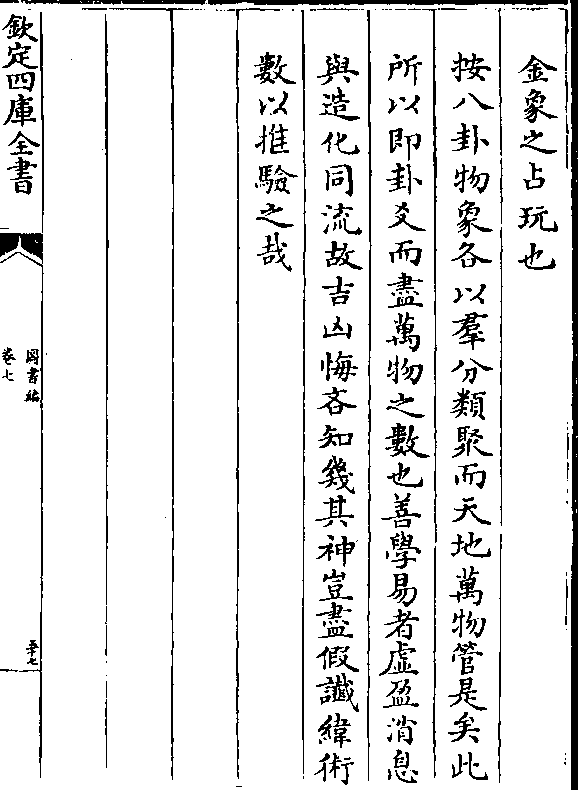 金象之占玩也
按八卦物象各以羣分類聚而天地萬物管是矣此
所以即卦爻而盡萬物之數也善學易者虛盈消息
與造化同流故吉凶悔吝知幾其神豈盡假讖緯術
數以推驗之哉
欽定四庫全書
圖書編
卷七
五十七